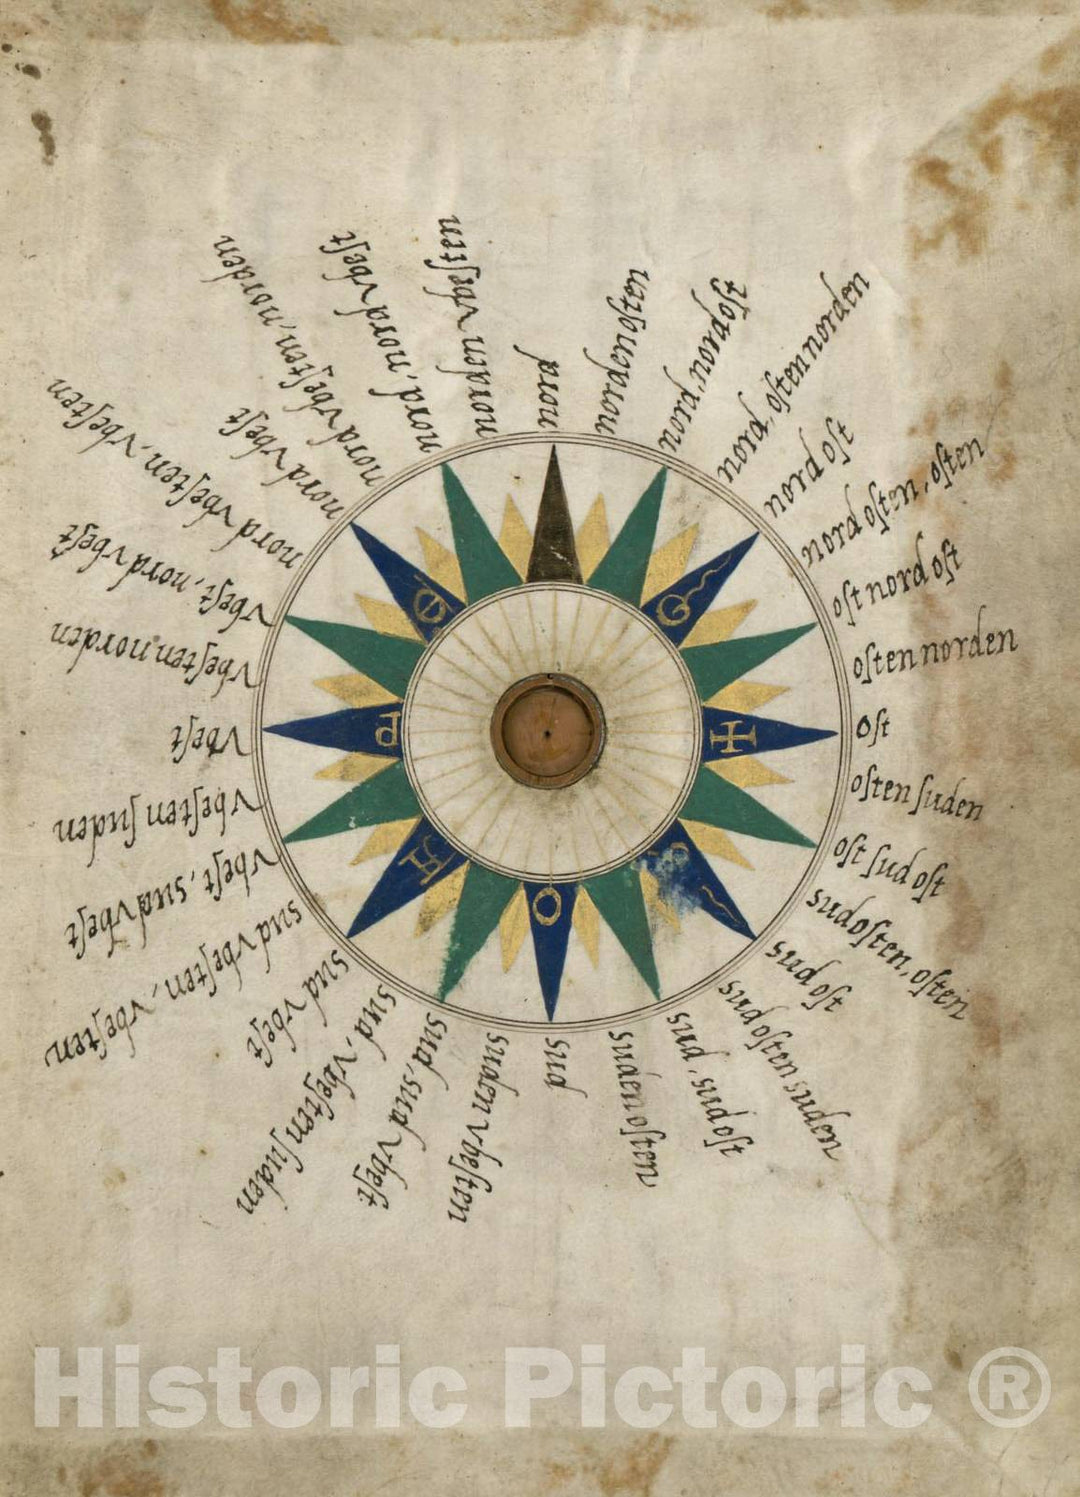 nord
nordenoſten
nord, nordoſt
nord, oſten norden
nord oſt
nord oſten, oſten
oſt nord oſt
oſten norden
Oſt
oſten ſuden
oſt ſud oſt
sudoſten, oſten
sud oſt
sud oſten suden
sud, sud oſt
suden oſten
sud
suden vbeſten
sud, sud vbeſt
sud, vbeſten ſuden
sud vbeſt
sud vbeſten, vbeſten
vbeſt, sud vbeſt
vbeſten ſuden
vbeſt
vbeſten norden
vbeſt, nord vbeſt
nord vbeſten, vbeſten
nord vbeſt
nord vbeſten, norden
nord, nord vbeſt
norden vbeſten
O
P
Historic Pictoric ®